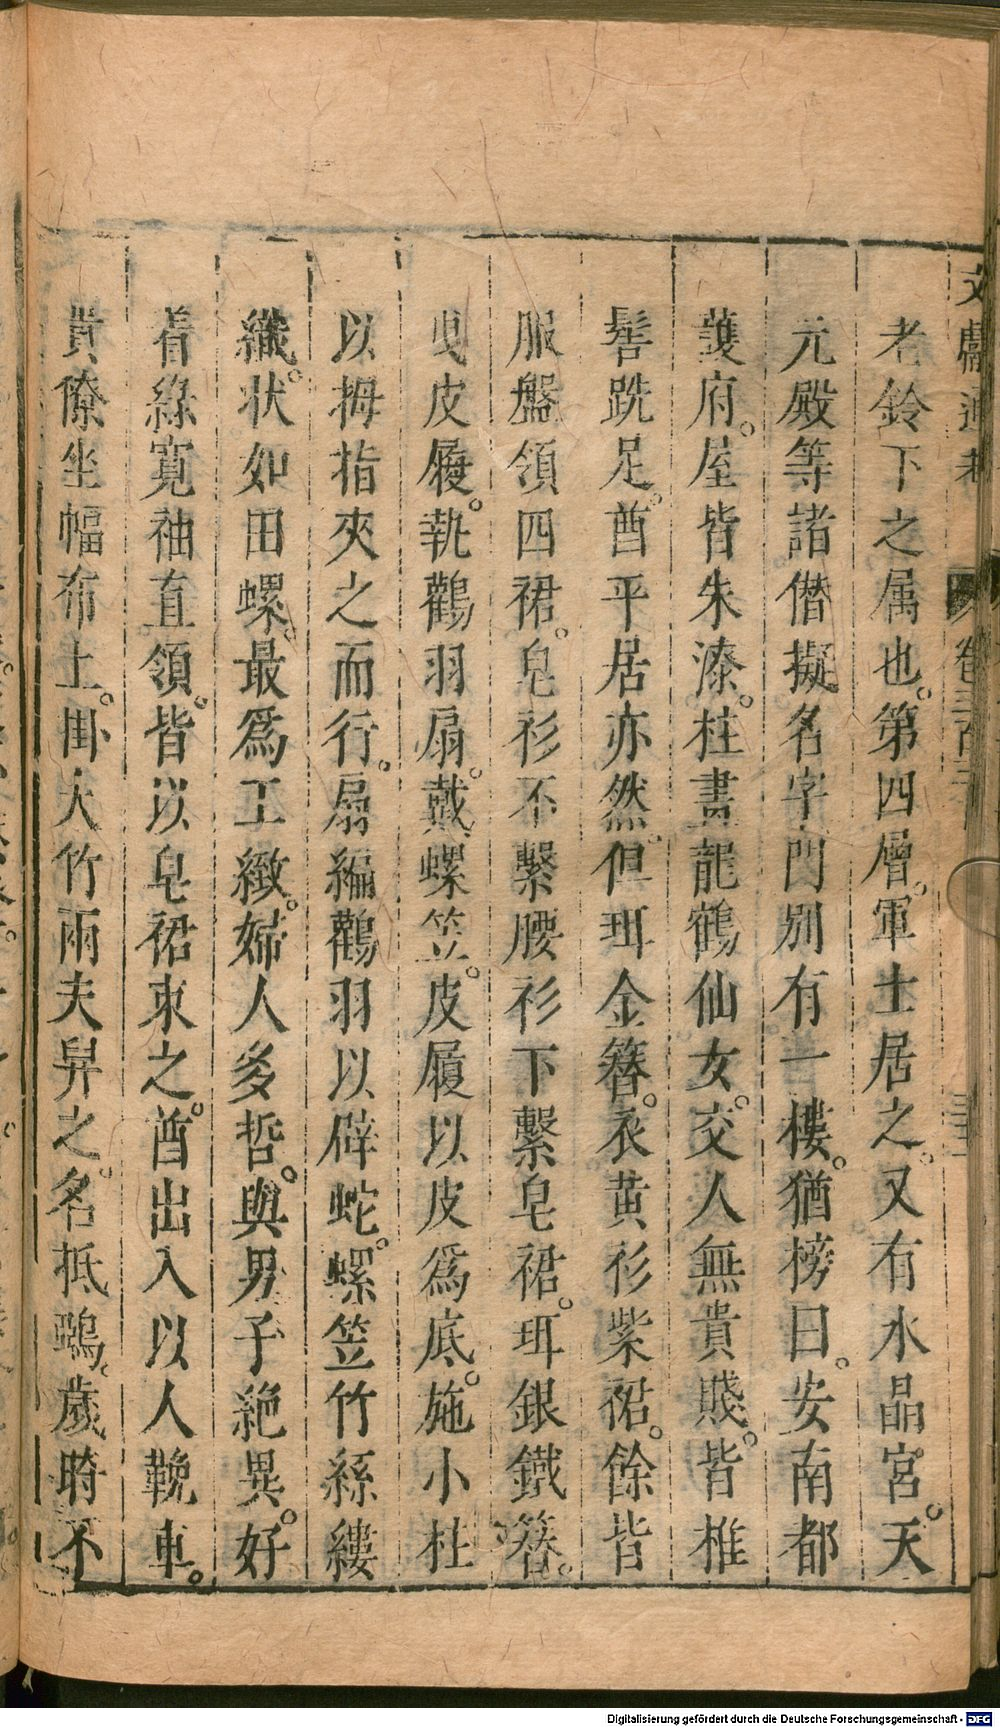 文獻通考 卷三百三
老鈴下之属也。第四層。軍士居之。又有水晶宮。天
元殿等諸僣擬名字門别有一樓。猶榜曰。安南都
護府。屋皆朱漆。柱畫龍鶴仙女。交人無貴賤。皆椎
髻跣足。酋平居亦然。但珥金簪。衣黄衫紫裙。餘皆
服盤領四裙。皂衫不繫腰衫下繫皂裙。珥銀鐵簪。
曳皮履。執鸛羽扇。戴螺笠。皮履以皮爲底。施小柱
以拇指夾之而行。扇編鸛羽以辟蛇。螺笠竹絲縷
織。状如田螺。最爲工緻。婦人多晳。與男子絶異。好
着綠寛袖直領。皆以皂裙束之。酋出入以人輓車。
貴僚坐幅布上。掛大竹兩夫舁之。名抵鵶。歲時不
Digitalisierung gefördert durch die Deutsche Forschungsgemeinschaft - DFG